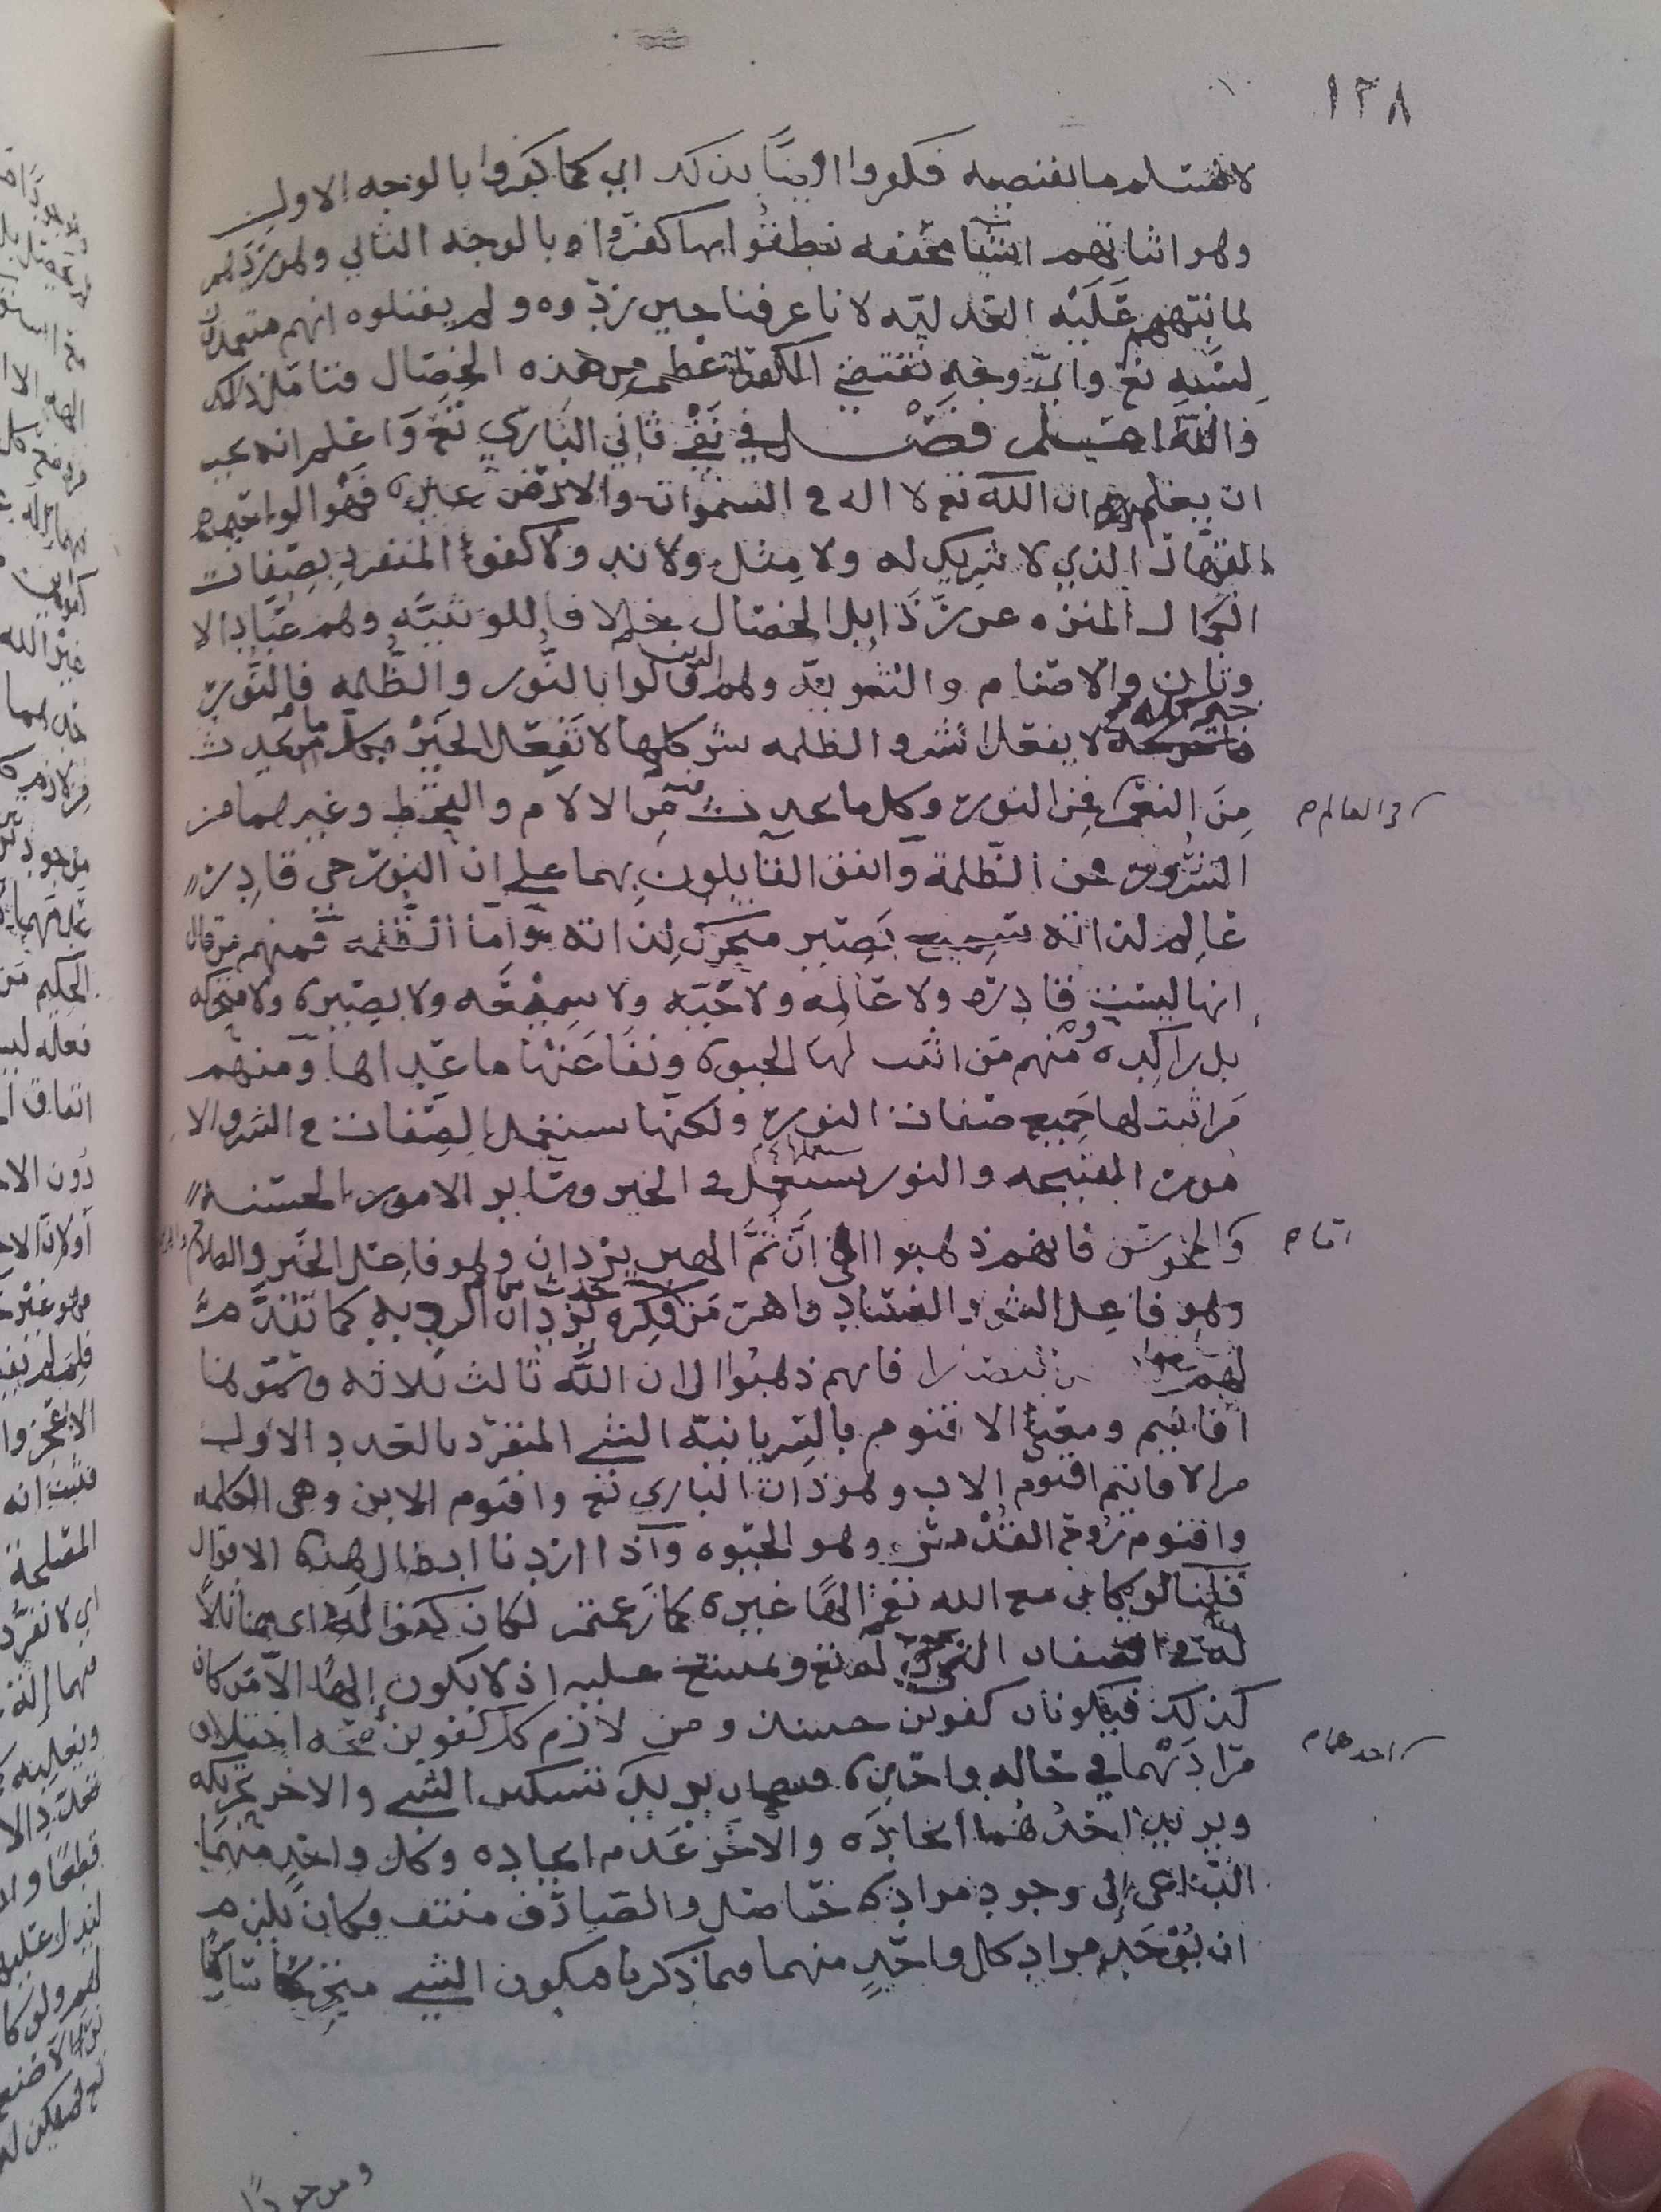 ١٢٨
فكفروا ايضا بذلك اي كما كفروا بالوجه الاول
وهو اثباتهم اشيا نطقوا بها كفروا وبالوجه الثاني وهو ردهم
لما نبتهم عليه العدليه لانا عرفنا حين ردوه ولم يقبلوه انهم متعمدون
لسبه تع واي وجه يقتضي الكفر اعظم من هذه الخصال فتامل ذلك
والله اعلم فصل في نفي ثاني الباري تع واعلم انه يجب
ان يعلم ان الله تع لا اله في السموات والارض غيره فهو الواحد
القهار الذي لا شريك له ولا مثل ولا ند ولا كفؤ المنفرد بصفات
الكمال المنزه عن رذايل الخصال خلافا للوثنيه وهم عباد الا
وثان والاصنام والثنويه وهم الذين قالوا بالنور والظلمه فالنور
خير كله لا يفعل الشر والظلمه شر كلها لا تفعل الخير فكل ما يحدث
في العالم
من النفع فمن النور وكل ما يحدث فيه من الالام والقحط وغيرهما من
الشرور من الظلمة واتفق القايلون بهما على ان النور حي قادر
عالم لذاته سميع بصير متحرك لذاته واما الظلمه فمنهم من قال
انها ليست قادره ولا عالمه ولا حيه ولا سميعه ولا بصيره ولا متحركه
بل راكده ومنهم من اثبت لها الحيوه ونفا عنها ما عداها ومنهم
من اثبت لها جميع صفات النور ولكنها تستعمل الصفات في الشر والا
مور القبيحه والنور يستعملها في الخير وساير الامور الحسنه
اما
والمجوس فانهم ذهبوا الى ان ثم الهين يزدان وهو فاعل الخير والصلاح
وهو فاعل الشر والفساد من فكره يزدان الرديه كما تقدم
لهم النصارا فانهم ذهبوا الى ان الله ثالث ثلاثه وسموها
اقانيم ومعنى الاقنوم بالسريانيه الشي المنفرد بالعدد الاول
من الاقانيم اقنوم الاب وهو ذات الباري تع واقنوم الابن وهي الكلمه
واقنوم روح القدس وهو الحيوه واذا اردنا ابطال هذه الاقوال
قلنا لو كان مع الله تع الها غيره كما زعمتم لكان كفوا له اي مماثلا
له في الصفات له تع ويمتنع عليه اذ لا يكون إلها الا من كان
كذلك فيكونان كفوين حينئذ ومن لازم كل كفوين صحه اختلاف
احدهما
مرادهما في حاله واحده يريد تسكين الشي والاخر تحريكه
ويريد احدهما ايجاده والاخر عدم ايجاده وكل واحد منهما
الداعي إلى وجود مراده حاصل والصارف منتف وكان يلزم
ان يوجد مراد كل واحد منهما فيما ذكرنا فيكون الشي متحركا ساكنا
وموجودا